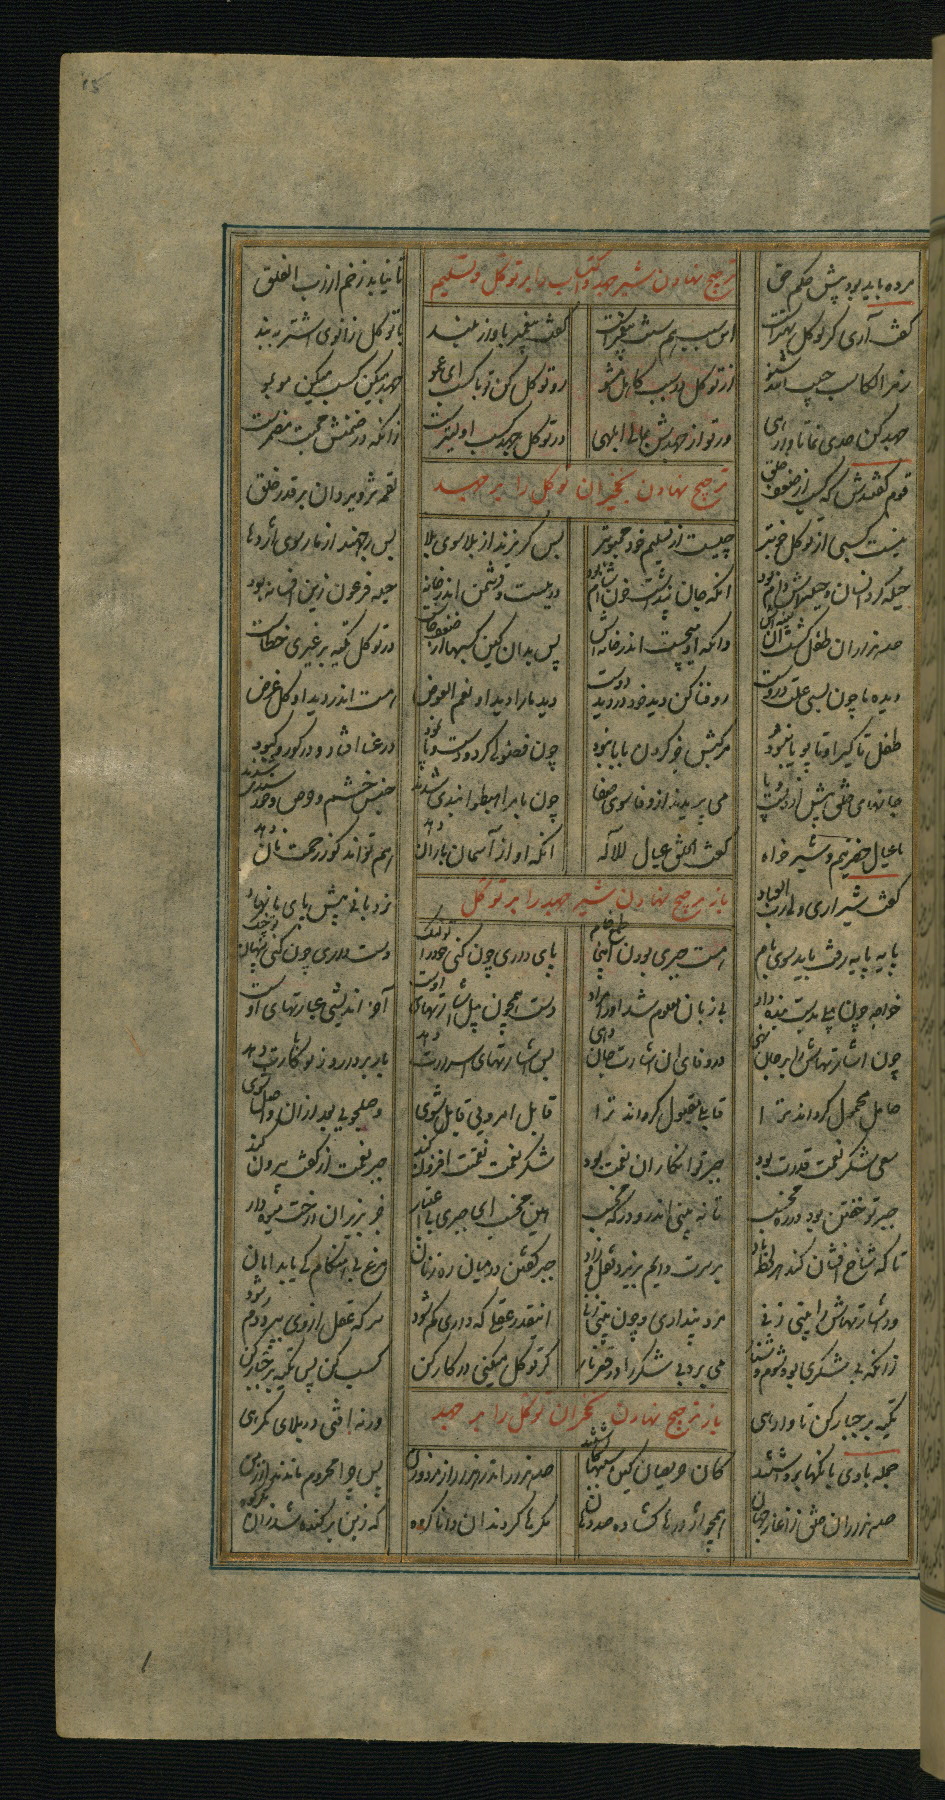 مرده باید بود پیش حکم حق
ترجیح نهادن شیر جهد و اکتساب را بر توکل و تسلیم
تا نیاید زخم از رب الفلق
گفت آری گر توکل رهبرست
این سبب هم سنت پیغمبرست
گفت پیغمبر باواز بلند
با توکل زانوی اشتر ببند
رمز الکاسب حبیب الله شنو
از توکل در سبب کاهل مشو
رو توکل کن تو با کسب ای عمو
جهد میکن کسب میکن مو بمو
جهد کن جدی نما تا وارهی
ور تو از جهدش بمانی ابلهی
در توکل جهد و کسب اولیترست
زانکه در ضمنش محبت مضمرست
قوم گفتندش که کسب از ضعف خلق
ترجیح نهادن نخچیران توکل را بر جهد
لقمه تزویر دان بر قدر حلق
نیست کسبی از توکل خوبتر
چیست از تسلیم خود محبوبتر
بس گریزند از بلا سوی بلا
بس جهند از مار سوی اژدها
حیله کرد انسان و حیله اش دام بود
انکه جان پنداشت خون آشام بود
در ببست و دشمن اندر خانه بود
حیله فرعون زین افسانه بود
صد هزاران طفل کشت آن کینه کش
وانکه او میجست اندر خانه اش
پس بدان کین کسبها از ضعف خاست
در توکل تکیه بر غیری خطاست
دیده ما چون بسی علت دروست
رو فنا کن دید خود در دید دوست
دید ما را دید او نعم العوض
هست اندر دید او کل غرض
طفل تا گیرا و تا پویا نبود
مرکبش جز گردن بابا نبود
چون فضولی کرد و دست و پا نمود
در عنا افتاد و در کور و کبود
جانهای خلق پیش از دست و پا
می پریدند از وفا سوی صفا
چون بامر اهبطوا بندی شدند
حبس خشم و حرص و خورسندی شدند
ما عیال حضرتیم و شیر خواه
گفت الخلق عیال للاله
انکه او از آسمان باران دهد
هم تواند کو ز رحمت نان دهد
گفت شیر اری ولی رب العباد
باز ترجیح نهادن شیر جهد را بر توکل
نردبانی پیش پای ما نهاد
پایه پایه رفت باید سوی بام
هست جبری بودن اینجا طمع خام
پای داری چون کنی خود را تو لنگ
دست داری چون کنی پنهان تو چنگ
خواجه چون بیلی بدست بنده داد
بی زبان معلوم شد او را مراد
دست همچون بیل اشارتهای اوست
آخر اندیشی عبارتهای اوست
چون اشارتهاش را بر جان نهی
در وفای ان اشارت جان دهی
پس اشارتهای اسرارت دهد
بار بردارد ز تو کارت دهد
حامل محمول گرداند ترا
قابلی مقبول گرداند ترا
قابل امر ویی قابل شوی
وصل جویی بعد ازان واصل شوی
سعی شکر نعمت قدرت بود
جبر تو انکار ان نعمت بود
شکر نعمت نعمتت افزون کند
جبر نعمت از کفت بیرون کند
جبر تو خفتن بود در ره مخسب
تا نه بینی ان در و درگه مخسب
هین مخسب ای جبری بی اعتبار
جز بزیر ان درخت میوه دار
تا که شاخ افشان کند هر لحظه باد
بر سرت دایم بریزد نقل و زاد
جبر خفتن در میان ره زنان
مرغ بی هنگام کی یابد امان
ور اشارتهاش را بینی زنی
مرد پنداری و چون بینی زنی
اینقدر عقلی که داری گم شود
سر که عقل از وی بپرد دم شود
زانکه بی شکری بود شوم و شنار
می برد بی شکر را در قعر نار
گر توکل میکنی در کار کن
کسب کن پس تکیه بر جبار کن
تکیه بر جبار کن تا وارهی
باز ترجیح نهادن نخچیران توکل را بر جهد
ورنه افتی در بلای گمرهی
جمله با وی بانگها برداشتند
کان حریصان کین سببها کاشتند
صد هزار اندر هزار از مرد و زن
پس چرا محروم ماندند از زمن
صد هزاران خلق ز آغاز جهان
همچو اژدرها گشاده صد دهان
مکرها کردند ان دانا گروه
که ز بن برکنده شد زان مکر کوه